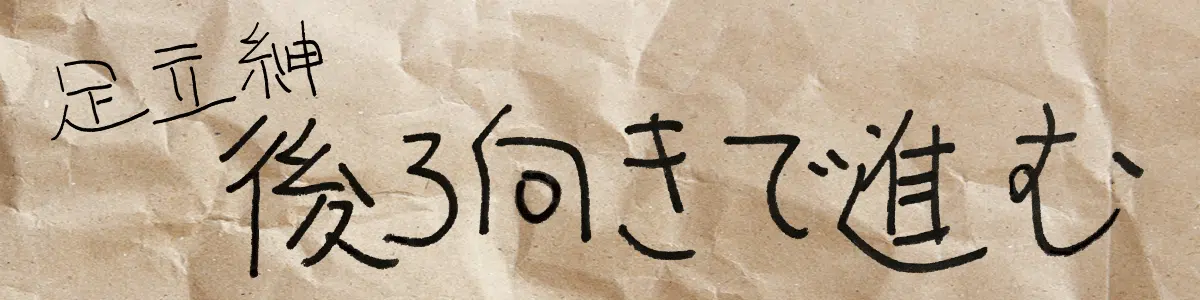 足立紳
後ろ向きで進む